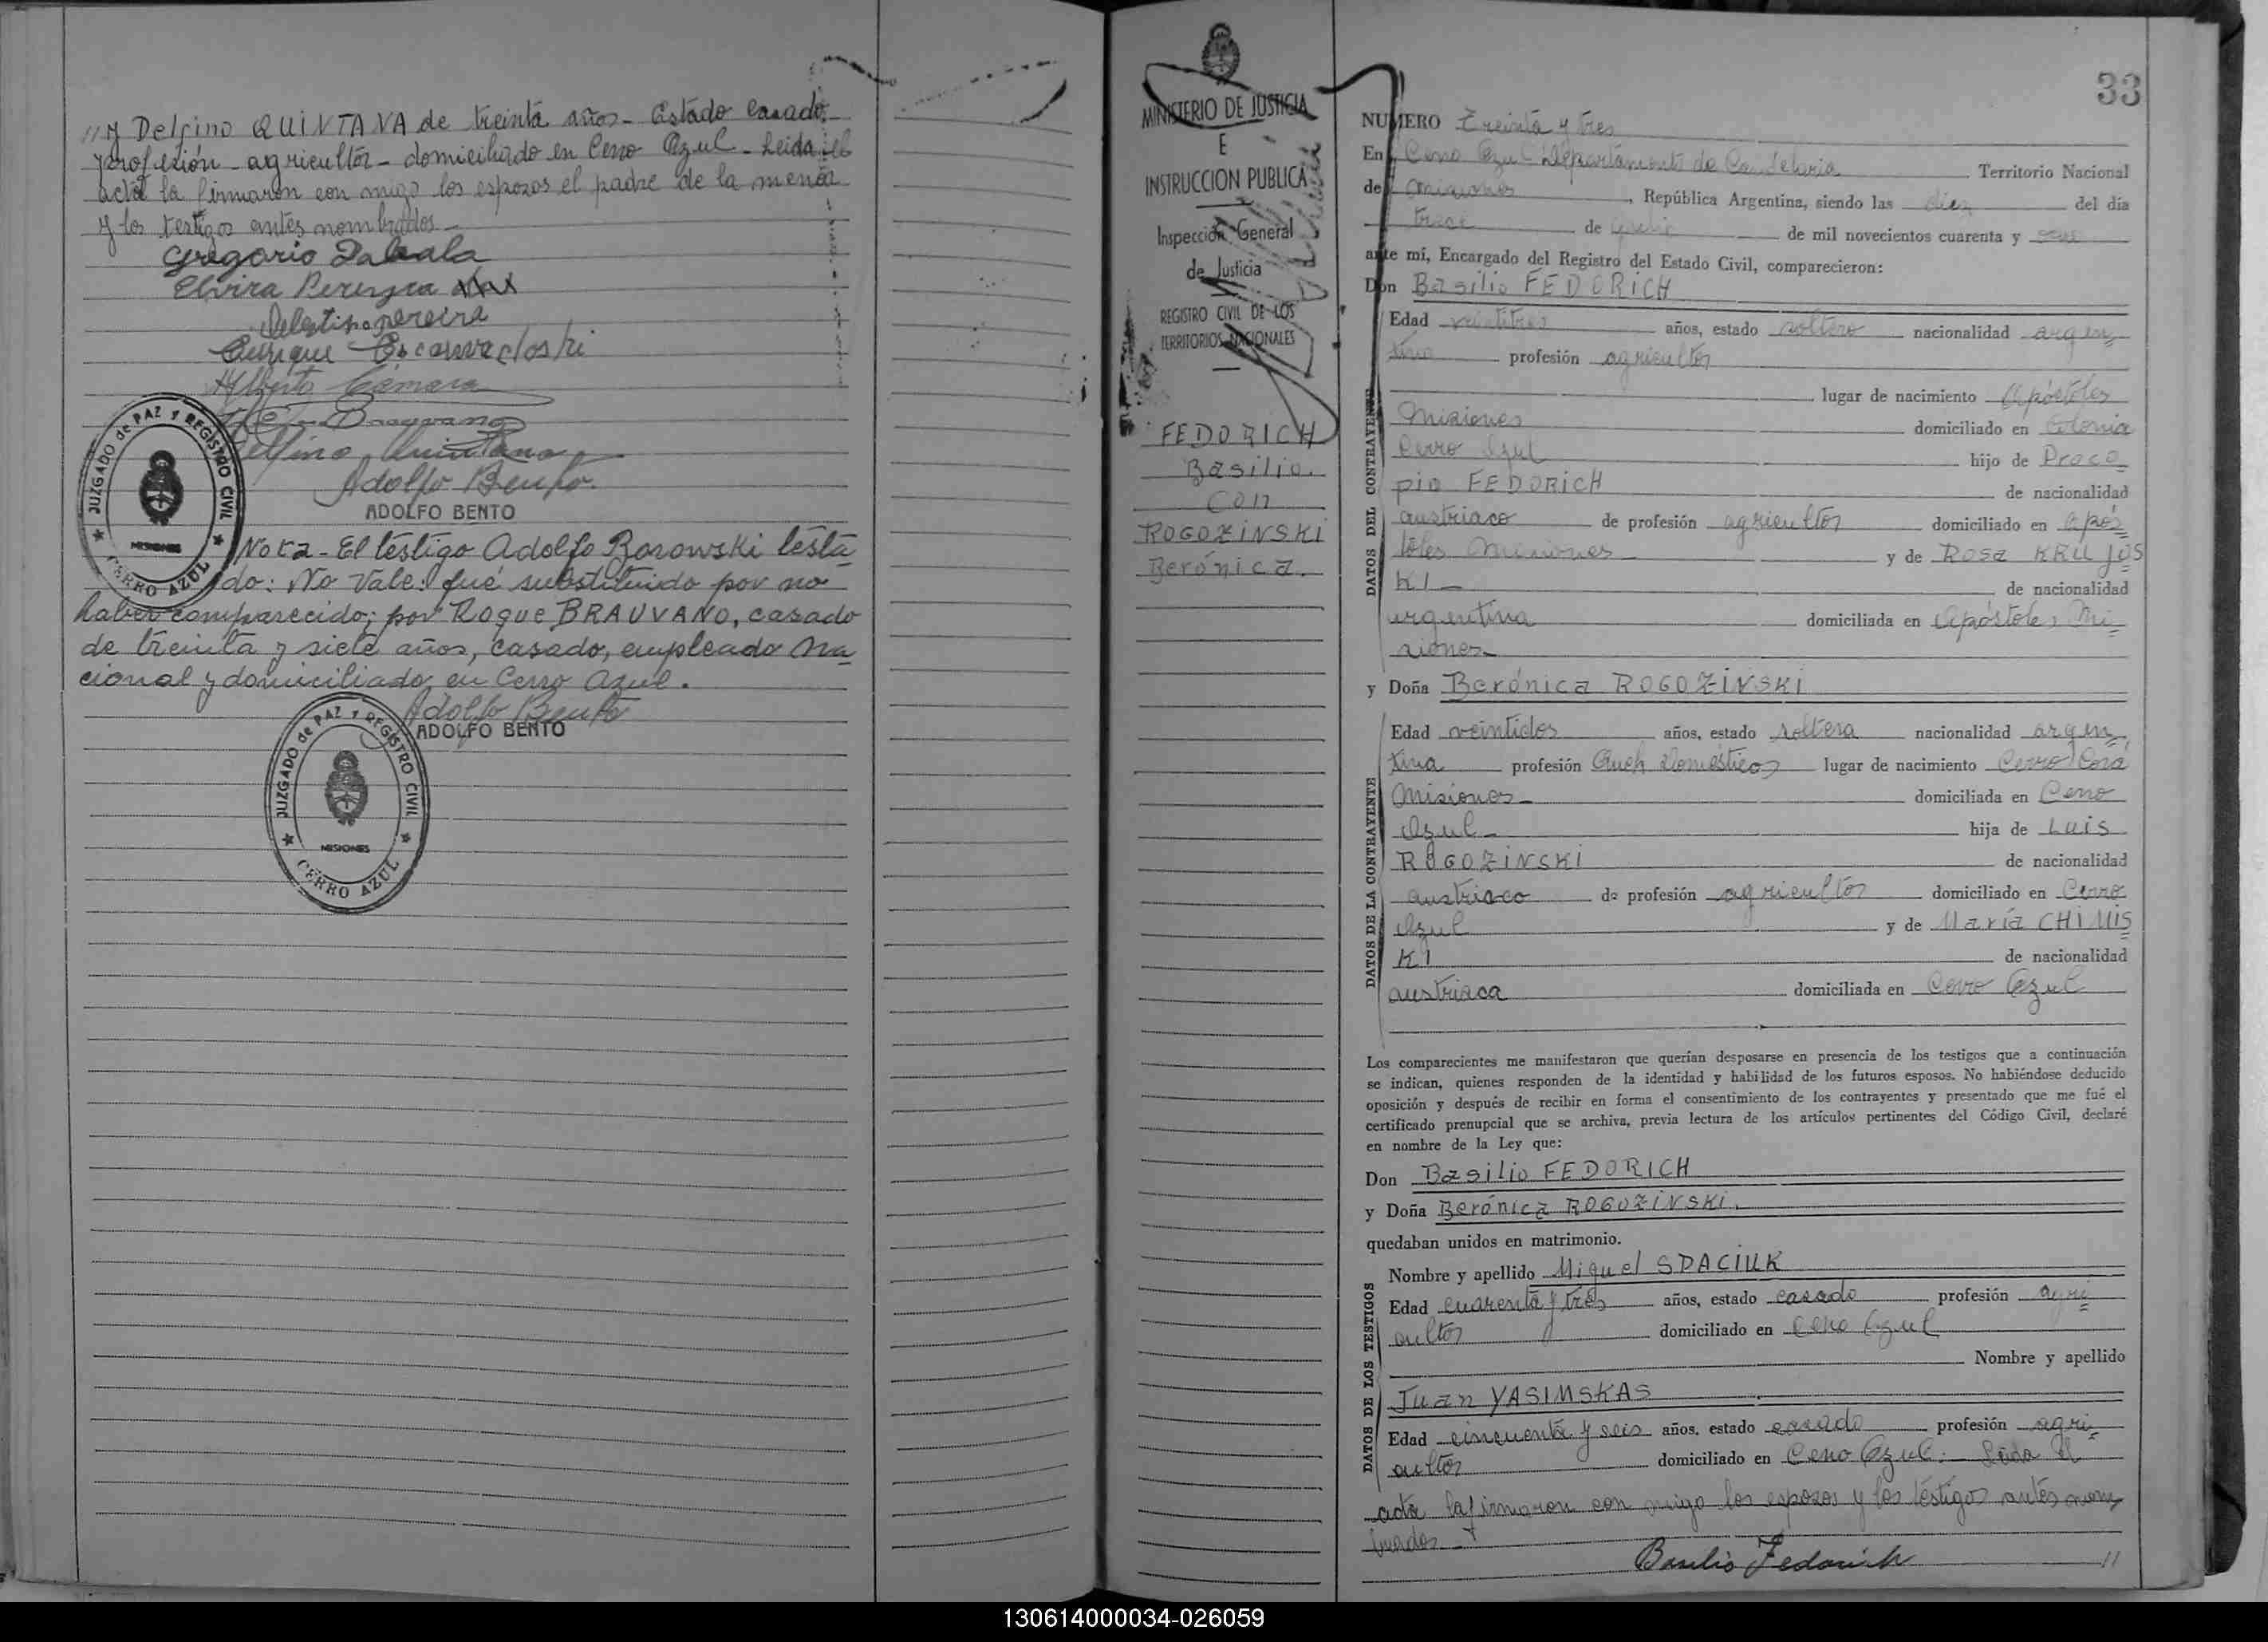 // y Delfino QUINTANA de treinta años - Estado casado,
profesión - agricultor - domiciliado en Cerro Azul - Leida el
acta la firmaron con migo los esposos el padre de la menor
y los testigos antes nombrados -
Gregorio
Elvira Pereyra
Celestino pereira
Enrique
Alberto Cámara
Brauvano
Delfino Quintana
Adolfo Bento.
ADOLFO BENTO
JUZGADO de PAZ Y REGISTRO CIVIL
MISIONES
CERRO AZUL
Nota - El testigo Adolfo Borowski testa
do: No Vale: fué substituido por no
haber comparecido; por ROQUE BRAUVANO, casado
de treinta y siete años, casado, empleado Na
cional y domiciliado en Cerro Azul.
Adolfo Bento
ADOLFO BENTO
JUZGADO de PAZ Y REGISTRO CIVIL
MISIONES
CERRO AZUL
MINISTERIO DE JUSTICIA
E
INSTRUCCION PUBLICA
Inspección General
de Justicia
REGISTRO CIVIL DE LOS
TERRITORIOS NACIONALES
FEDORICH
Basilio.
con
ROGOZINSKI
Berónica.
33
NUMERO Treinta y tres
En Cerro Azul Departamento de Candelaria Territorio Nacional
de Misiones, República Argentina, siendo las diez del día
trece de de mil novecientos cuarenta y
ante mí, Encargado del Registro del Estado Civil, comparecieron:
Don Basilio FEDORICH
DATOS DEL CONTRAYENTE
Edad veintitres años, estado soltero nacionalidad argen
tina profesión agricultor
lugar de nacimiento Apóstoles
Misiones domiciliado en Colonia
Cerro Azul hijo de Proco
pio FEDORICH de nacionalidad
austriaco de profesión agricultor domiciliado en Após
toles Misiones y de Rosa KRUJOS
KI - de nacionalidad
argentina domiciliada en Apóstoles Mi
siones -
y Doña Berónica ROGOZINSKI
DATOS DE LA CONTRAYENTE
Edad veintidos años, estado soltera nacionalidad argen
tina profesión Queh. Domésticos lugar de nacimiento Cerro Corá
Misiones - domiciliada en Cerro
Azul - hija de LUIS
ROGOZINSKI de nacionalidad
austriaco de profesión agricultor domiciliado en Cerro
Azul y de María CHIMIS
KI de nacionalidad
austriaca domiciliada en Cerro Azul
Los comparecientes me manifestaron que querían desposarse en presencia de los testigos que a continuación
se indican, quienes responden de la identidad y habilidad de los futuros esposos. No habiéndose deducido
oposición y después de recibir en forma el consentimiento de los contrayentes y presentado que me fué el
certificado prenupcial que se archiva, previa lectura de los artículos pertinentes del Código Civil, declaré
en nombre de la Ley que:
Don Basilio FEDORICH
y Doña Berónica ROGOZINSKI.
quedaban unidos en matrimonio.
DATOS DE LOS TESTIGOS
Nombre y apellido Miguel SPACIUK
Edad cuarenta y tres años, estado casado profesión agri
cultor domiciliado en Cerro Azul
Nombre y apellido
Juan YASIMSKAS
Edad cincuenta y seis años, estado casado profesión agri
cultor domiciliado en Cerro Azul. - Leida el
acta la firmaron con migo los esposos y los testigos antes nom
brados -
Basilio Fedorich //
130614000034-026059